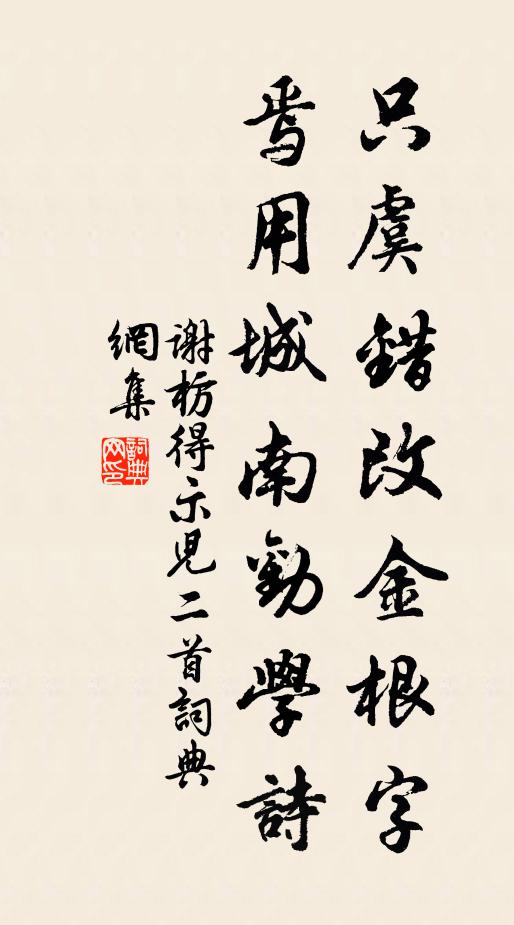 只虞錯改金根字
焉用城南勸學詩
謝枋得示兒二首詞典
網集
詞典
网印